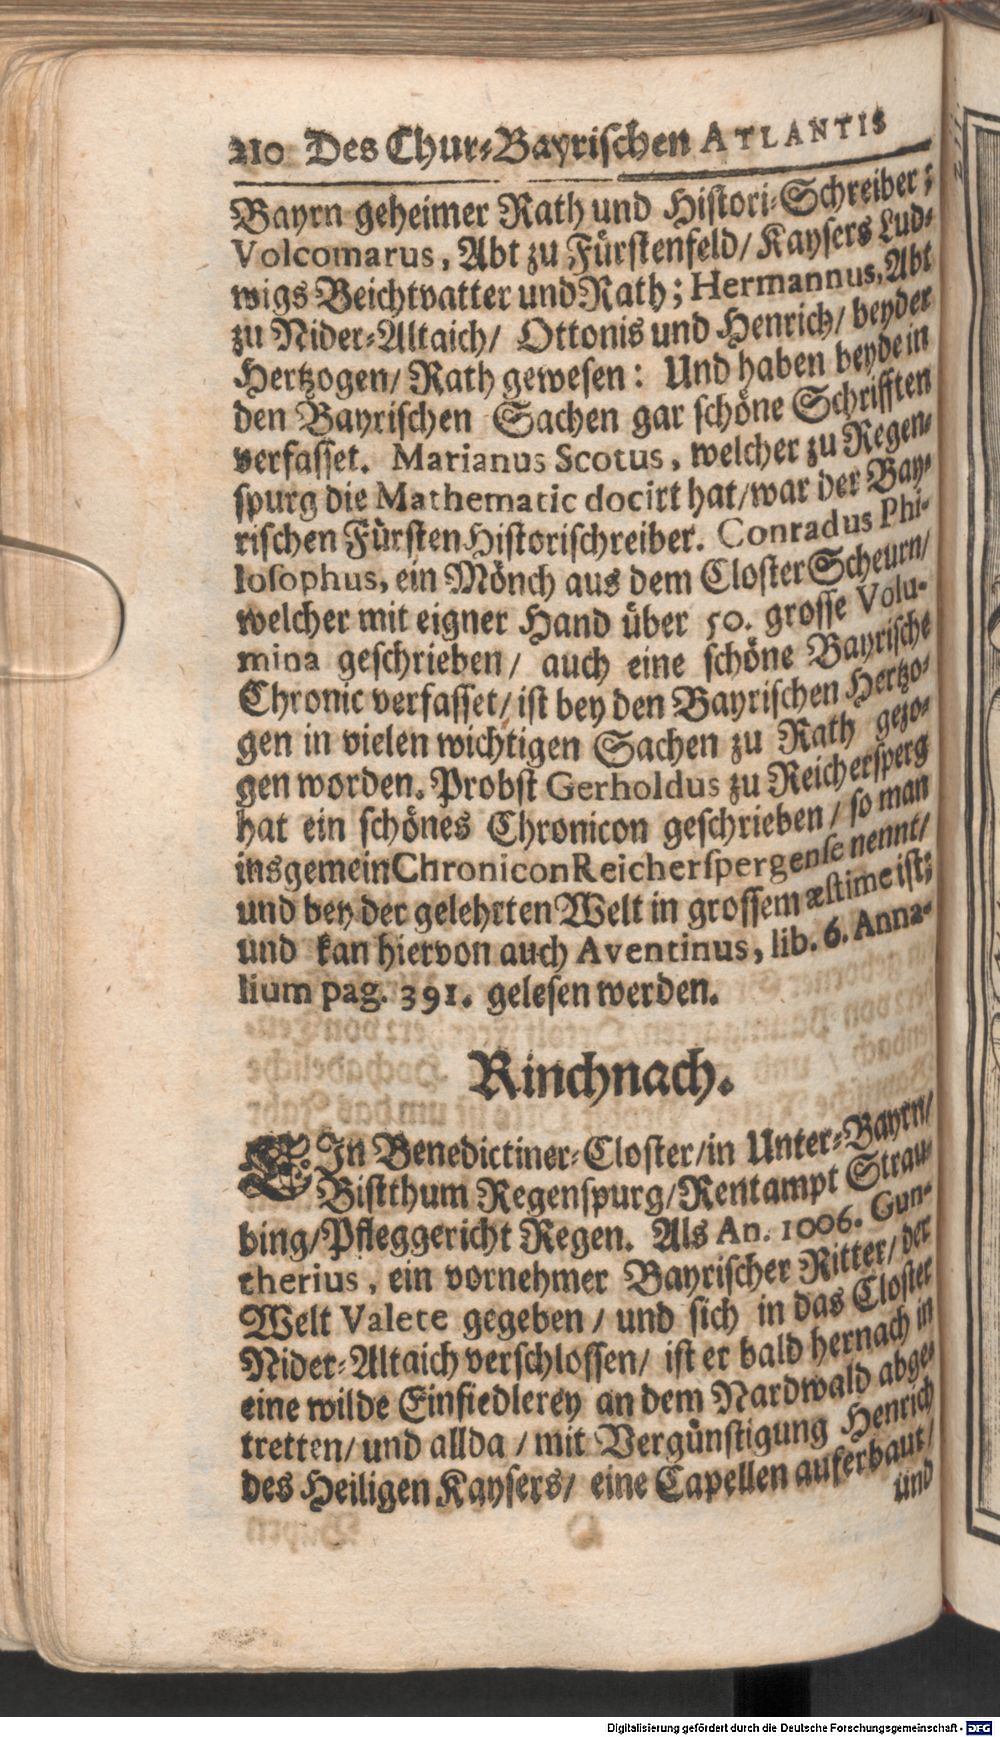 210 Des Chur-Bayrischen ATLANTIS
Bayrn geheimer Rath und Histori-Schreiber;
Volcomarus, Abt zu Fürstenfeld/ Kaysers Lud-
wigs Beichtvatter und Rath; Hermannus, Abt
zu Nider-Altaich/ Ottonis und Henrich/ beyder
Hertzogen/ Rath gewesen: Und haben beyde in
den Bayrischen Sachen gar schöne Schrifften
verfasset. Marianus Scotus, welcher zu Regen-
spurg die Mathematic docirt hat/ war der Bay-
rischen Fürsten Historischreiber. Conradus Phi-
losophus, ein Mönch aus dem Closter Scheurn/
welcher mit eigner Hand über 50. grosse Volu-
mina geschrieben/ auch eine schöne Bayrische
Chronic verfasset/ ist bey den Bayrischen Hertzo-
gen in vielen wichtigen Sachen zu Rath gezo-
gen worden. Probst Gerholdus zu Reichersperg
hat ein schönes Chronicon geschrieben/ so man
insgemein Chronicon Reicherspergense nennt/
und bey der gelehrten Welt in grossem æstime ist;
und kan hiervon auch Aventinus, lib. 6. Anna-
lium pag. 391. gelesen werden.
Rinchnach.
EIn Benedictiner-Closter/ in Unter-Bayrn/
Bistthum Regenspurg/ Rentampt Strau-
bing/ Pfleggericht Regen. Als An. 1006. Gun-
therius, ein vornehmer Bayrischer Ritter/ der
Welt Valete gegeben/ und sich in das Closter
Nider-Altaich verschlossen/ ist er bald hernach in
eine wilde Einsiedlerey an dem Nardwald abge-
tretten/ und allda/ mit Vergünstigung Henrich
des Heiligen Kaysers/ eine Capellen auferbaut/
und
Digitalisierung gefördert durch die Deutsche Forschungsgemeinschaft - DFG